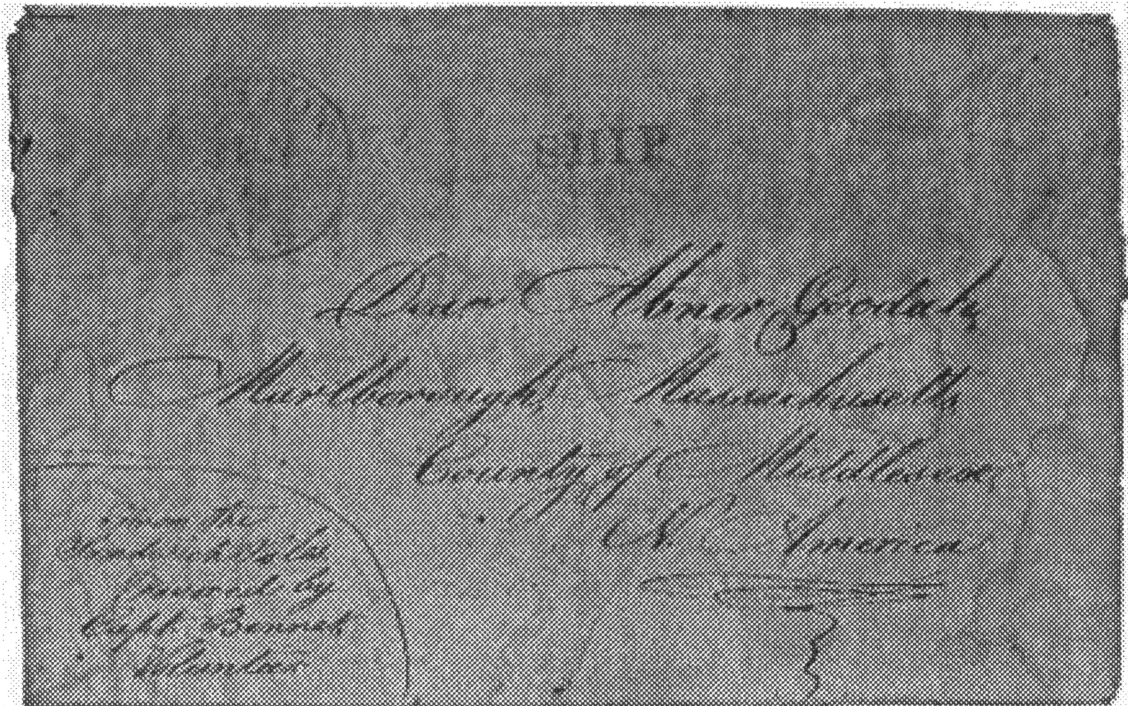 SHIP
Dean Abner Goodale,
Marlborough, Massachusetts,
County of Middlesex,
N. America
From the
Sandwich Isles
Favored by
Capt. Bennet
Volunteer